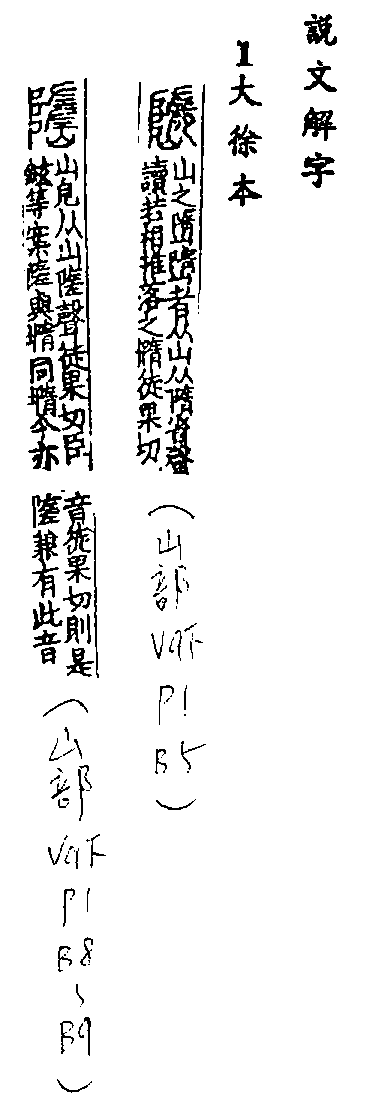 説文解字
1大徐本
山之嶞嶞者从山从憜省聲
讀若相推落之憜徒果切
(山部V9下P1B5)
山皃从山隓聲徒果切臣
鉉等案隓與墮同墮今亦
音徒果切則是
隓兼有此音
(山部V9下P1B8~B9)